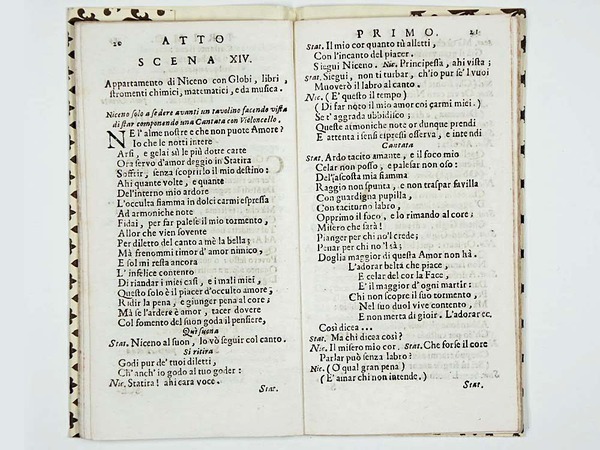 20 ATTO
SCENA XIV.
Appartamento di Niceno con Globi, libri,
stromenti chimici, matematici, e da musica.
Niceno solo a sedere avanti un tavolino facendo vista
di star componendo una Cantata con Violoncello.
NE l'alme nostre e che non puote Amore?
Io che le notti intere
Arsi, e gelai sù le più dotte carte
Ora servo d'amor deggio in Statira
Soffrir, senza scoprirlo il mio destino:
Ahi quante volte, e quante
Del'interno mio ardore
L'occulta fiamma in dolci carmi espressa
Ad armoniche note
Fidai, per far palese il mio tormento,
Allor che vien sovente
Per diletto del canto a mè la bella;
Mà frenommi timor d'amor nimico,
E sol mi resta ancora
L'infelice contento
Di riandar i miei casi, e i mali miei,
Questo solo è il piacer d'occulto amore,
Ridir la pena, e giunger pena al core;
Mà se l'ardere è amor, tacer dovere
Col fomento del suon goda il pensiere,
Qui suona
Stat. Niceno al suon, Io vò seguir col canto.
Si ritira
Godi pur de' tuoi diletti,
Ch'anch'io godo al tuo goder:
Nic. Statira! ahi cara voce.
Stat.
PRIMO. 21
Stat. Il mio cor quanto tù alletti,
Con l'incanto del piacer.
Siegui Niceno. Nic. Principessa, ahi vista;
Stat. Siegui, non ti turbar, ch'io pur se'l vuoi
Muoverò il labro al canto.
Nic. (E' questo il tempo)
(Di far noto il mio amor coi carmi miei.)
Se t'aggrada ubbidisco;
Queste armoniche note or dunque prendi
E attenta i sensi espressi osserva, e intendi
Cantata
Stat. Ardo tacito amante, e il foco mio
Celar non posso, e palesar non oso:
Del'ascosta mia fiamma
Raggio non spunta, e non traspar favilla
Con guardigna pupilla,
Con taciturno labro,
Opprimo il foco, e lo rimando al core;
Misero che sarà!
Pianger per chi no'l crede;
Penar per chi no'l sà;
Doglia maggior di questa Amor non hà.
L'adorar beltà che piace,
E celar del cor la Face,
E' il maggior d'ogni martir:
Chi non scopre il suo tormento,
Nel suo duol vive contento,
E non merta di gioir. L'adorar ec.
Così dicea...
Stat. Ma chi dicea così?
Nic. Il misero mio cor. Stat. Che forse il core
Parlar può senza labro?
Nic. (O qual gran pena)
(E' amar chi non intende.)
Stat.